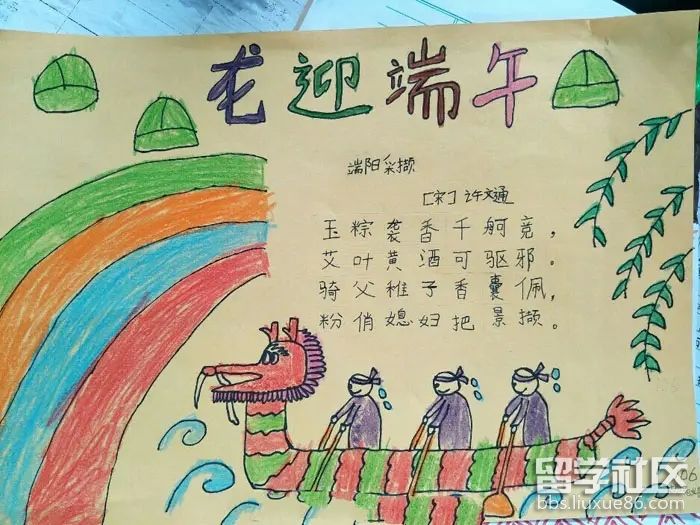 龙迎端午
端阳采撷
［宋］许文通
玉粽袭香千舸竞，
艾叶黄酒可驱邪。
骑父稚子香囊佩，
粉俏媳妇把景撷。
留学社区
bbs.liuxue86.com